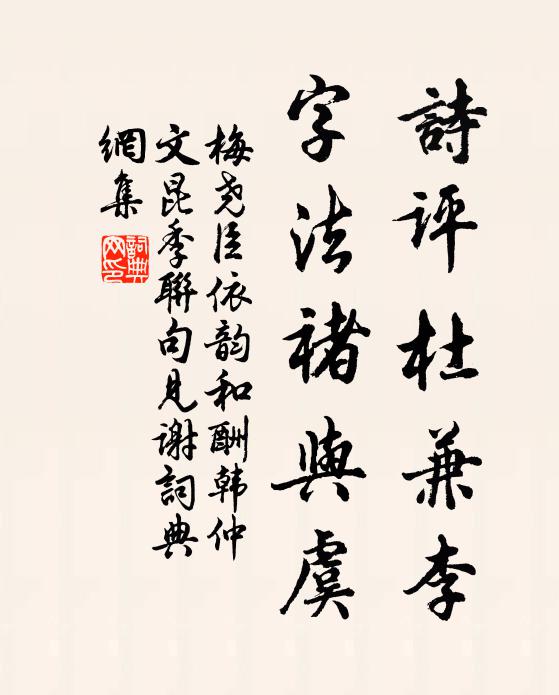 詩評杜兼李
字法褚與虞
梅尧臣依韵和酬韩仲
文昆季聯句見谢詞典
網集
詞典
网印